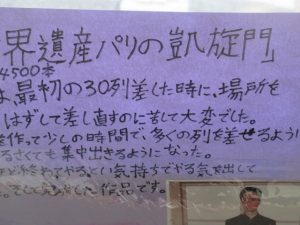 界遺産パリの凱旋門
4500本
は、最初の30列差した時に、場所を
はずして差し直すのに苦して大変でした。
作って少しの時間で、多くの列を差せるように
るさくても集中出きるようになった。
気持ちでやる気を出して
作品です。